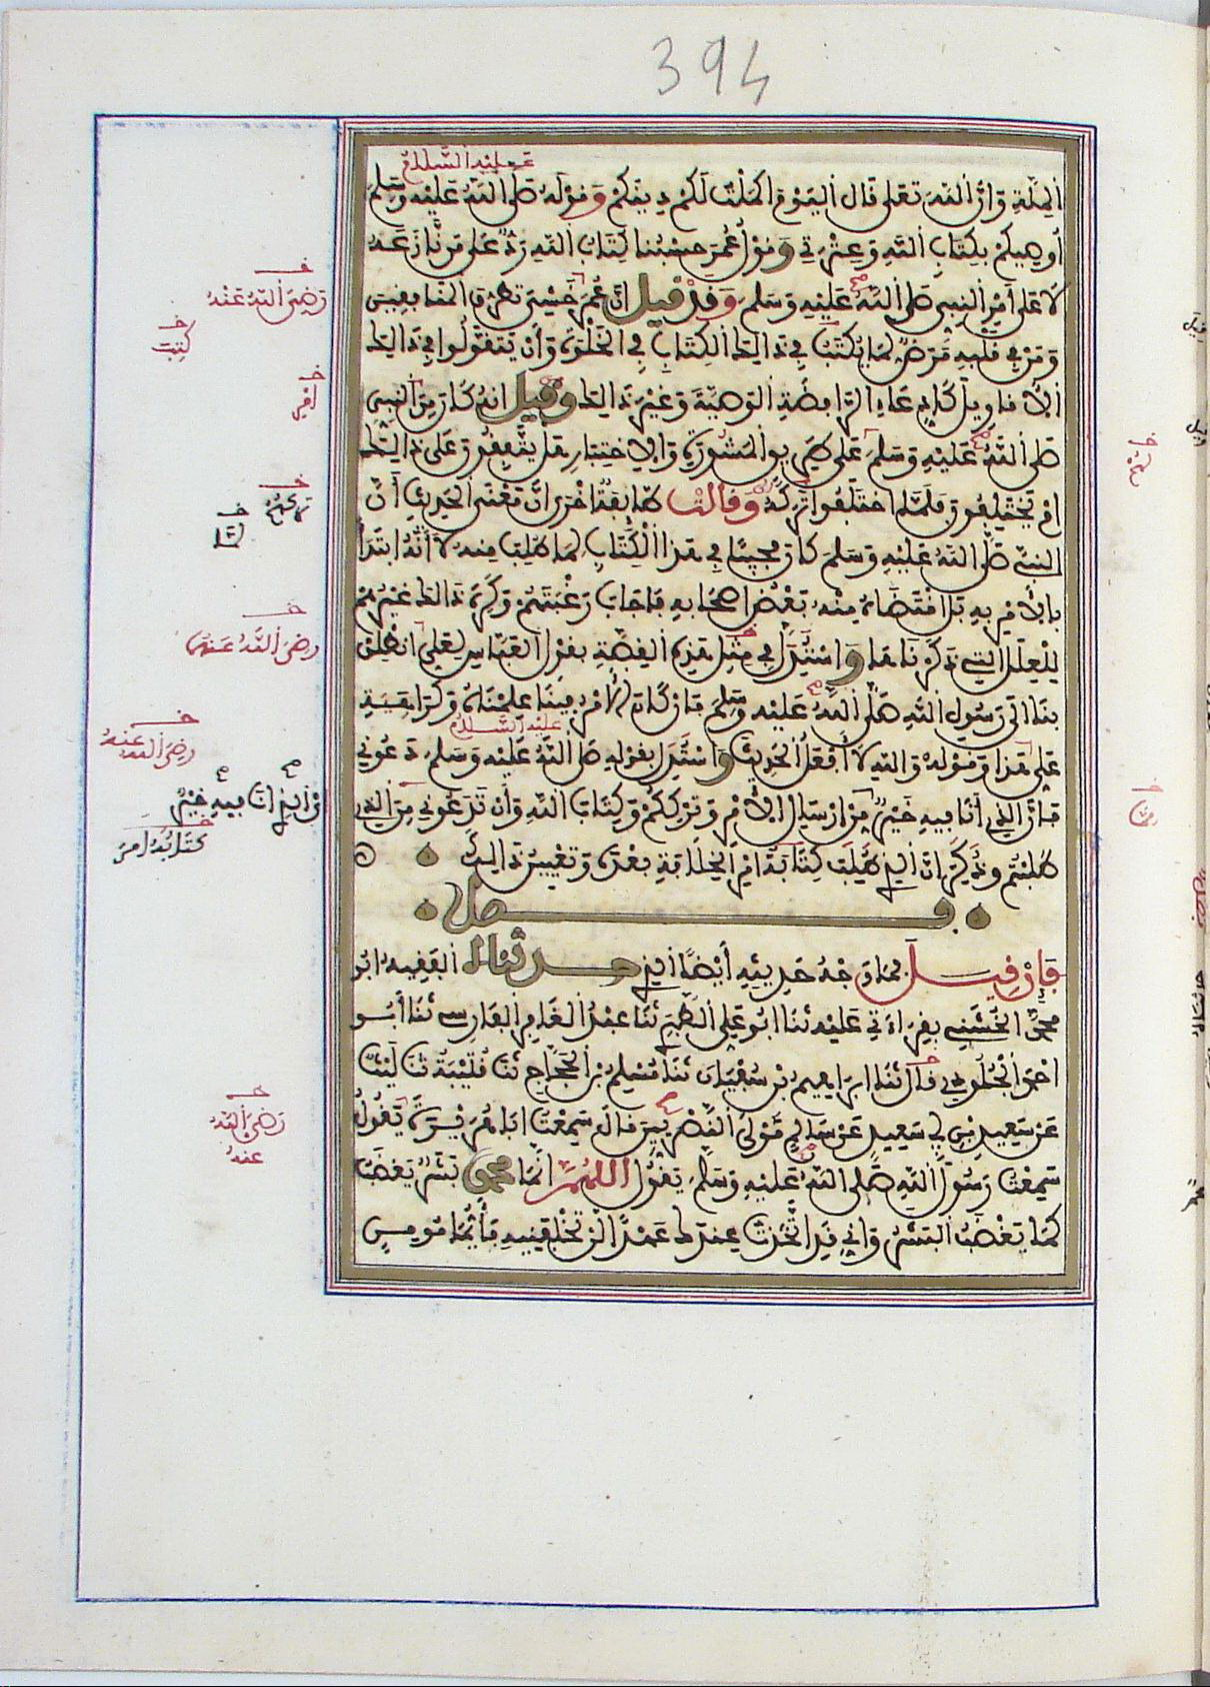 394
عَلَيْهِ السَّلَامُ
الملة وان الله تعلى قال اليوم اكملت لكم دينكم وقوله صلى الله عليه وسلم
أوصيكم بكتاب الله وعترتي وقول عمر حسبنا كتاب الله رد على من نازعه
لا على أمر النبي صلى الله عليه وسلم وقد قيل ان عمر خشي تطرق المنافقين
ومن في قلبه مرض لما يكتب في ذالك الكتاب في الخلوة وأن يتقولوا في ذالك
الأقاويل كادعاء الرافضة الوصية وغير ذالك وقيل انه كان من النبي
صلى الله عليه وسلم على طريق المشورة والاختبار هل يتفقون على ذالك
ام يختلفون فلما اختلفوا تركه وقالت طايفة اخرى ان معنى الحديث أن
النبي صلى الله عليه وسلم كان مجيبا في هذا الكتاب لما طلب منه لا أنه ابتدأ
بالأمر به بل اقتضاه منه بعض اصحابه فاجاب رغبتهم وكره ذالك غيرهم
للعلل التي ذكرناها واستدل في مثل هذه القصة بقول العباس لعلي انطلق
بنا الى رسول الله صلى الله عليه وسلم فان كان الأمر فينا علمناه وكراهية
عليه السلام
علي هذا وقوله والله لا أفعل الحديث واستدل بقوله صلى الله عليه وسلم دعوني
فان الذي أنا فيه خير من ارسال الأمر وترككم وكتاب الله وأن تدعوني من الذي
طلبتم وذكر ان الذي طلب كتابة امر الخلافة بعده وتعيين ذالك
فصل
فإن قيل فما وجه حديثه أيضا الذي حدثناه الفقيه ابو
محمد الخشني بقراءتي عليه ثنا ابو علي الطبري ثنا عبد الغافر الفارسي ثنا أبو
احمد الجلودي قال ثنا ابراهيم بن سفيان ثنا مسلم بن الحجاج ثنا قتيبة ثنا ليث
عن سعيد بن أبي سعيد عن سالم مولى النصريين قال سمعت ابا هريرة يقول
سمعت رسول الله صلى الله عليه وسلم يقول اللهم انما محمد بشر يغضب
كما يغضب البشر واني قد اتخذت عندك عهدا لن تخلفنيه فأيما مومن
رضي الله عنه
كتب
امر
رضي الله عنه
رضي الله عنه
الذي انا فيه خير
كتابة امر
رضي الله
عنه